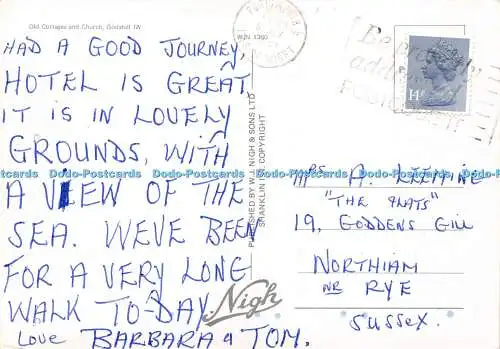 Old Cottages and Church, Godshill IW
HAD A GOOD JOURNEY,
HOTEL IS GREAT
IT IS IN LOVELY
GROUNDS, WITH
A VIEW OF THE
SEA. WE'VE BEEN
FOR A VERY LONG
WALK TO-DAY.
Love BARBARA & TOM.
PUBLISHED BY W.J. NIGH & SONS LTD
SHANKLIN I.W. COPYRIGHT
Nigh
Be properly
14P
MRS A.
"THE FLATS"
19, GODDENS GILL
NORTHIAM
NR RYE
SUSSEX.
Dodo-Postcards Dodo-Postcards Dodo-Postcards Dodo-Postcards